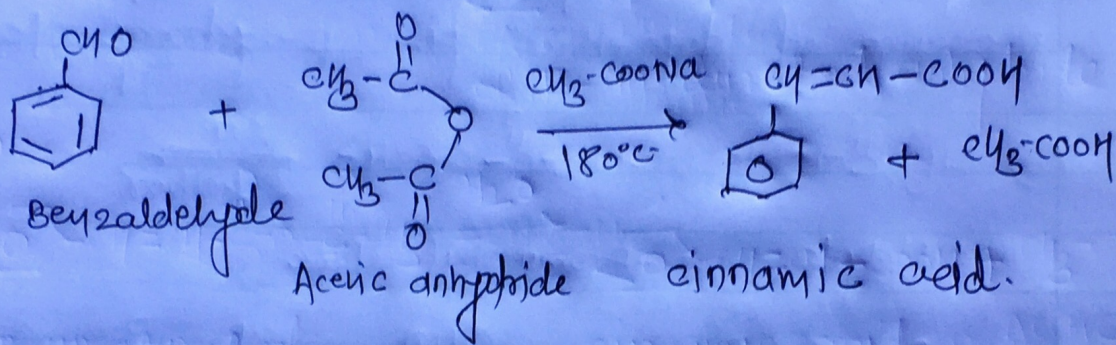 CHO + CH3-C(=O)-O-C(=O)-CH3 CH3-COONa 180°C CH=CH-COOH + CH3-COOH
Benzaldehyde
Acetic anhydride cinnamic acid.